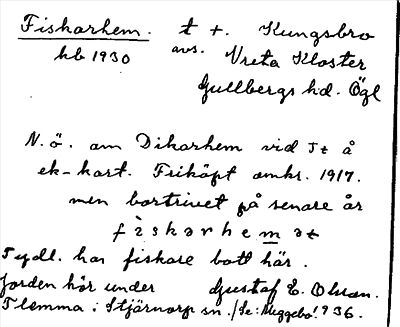 Fiskarhem. t +. Kungsbro
kb 1930 avs. Vreta Kloster
Gullbergs hd. Ögl
N. ö. om Dikarhem vid St å
ek-kart. Friköpt omkr. 1917.
men bortrivet på senare år
fìskarhem ət
Tydl. har fiskare bott här.
Jorden hör under Gustaf E. Olsson.
Flemma i Stjärnorp sn. /Se: Meggebo! 936.